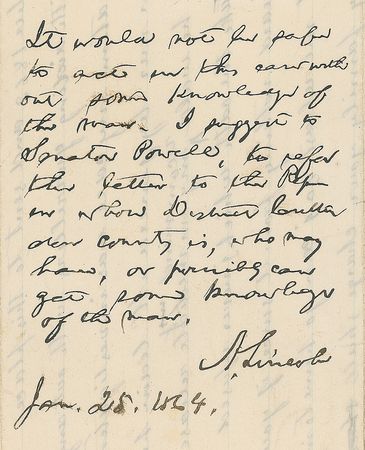 It would not be safe
to act in this case with
out some knowledge of
the man. I suggest to
Senator Powell, to refer
this letter to the Rep.
in whose District Critten
den county is, who may
have, or possibly can
get some knowledge
of the man.
A. Lincoln
Jan. 25. 1864.